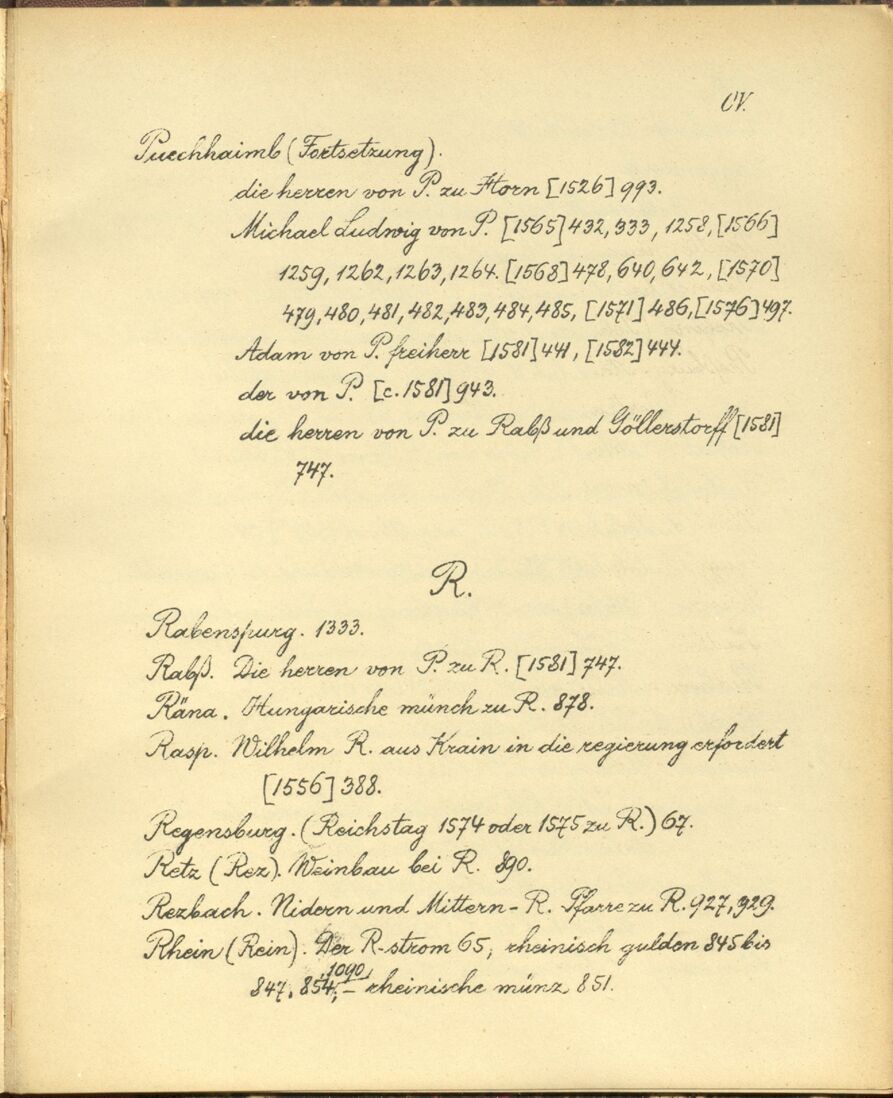 CV.
Puechhaimb (Fortsetzung).
die herren von P. zu Horn [1526] 993.
Michael Ludwig von P. [1565] 432, 333, 1258, [1566]
1259, 1262, 1263, 1264. [1568] 478, 640, 642, [1570]
479, 480, 481, 482, 483, 484, 485, [1571] 486, [1576] 497.
Adam von P. freiherr [1581] 441, [1582] 444.
der von P. [c. 1581] 943.
die herren von P. zu Rabß und Göllerstorff [1581]
747.
R.
Rabenspurg. 1333.
Rabß. Die herren von P. zu R. [1581] 747.
Räna. Hungarische münch zu R. 878.
Rasp. Wilhelm R. aus Krain in die regierung erfordert
[1556] 388.
Regensburg. (Reichstag 1574 oder 1575 zu R.) 67.
Retz (Rez). Weinbau bei R. 890.
Rezbach. Nidern und Mittern-R. Pfarre zu R. 927, 929.
Rhein (Rein). Der R-strom 65, rheinisch gulden 845 bis
847, 854, 1090, – rheinische münz 851.